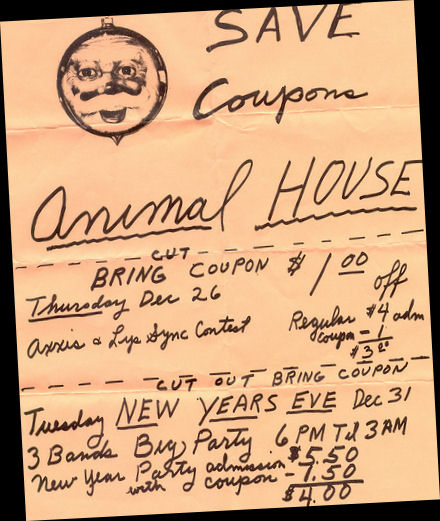 SAVE
Coupons
Animal HOUSE
CUT
BRING COUPON $1.00 off
Thursday Dec 26
Axxis & Lip Sync Contest
Regular $4 adm
coupon - 1
$3.00
CUT OUT BRING COUPON
Tuesday NEW YEARS EVE Dec 31
3 Bands Big Party 6 PM Til 3 AM
New Year Party admission $5.50
with coupon - 1.50
$4.00